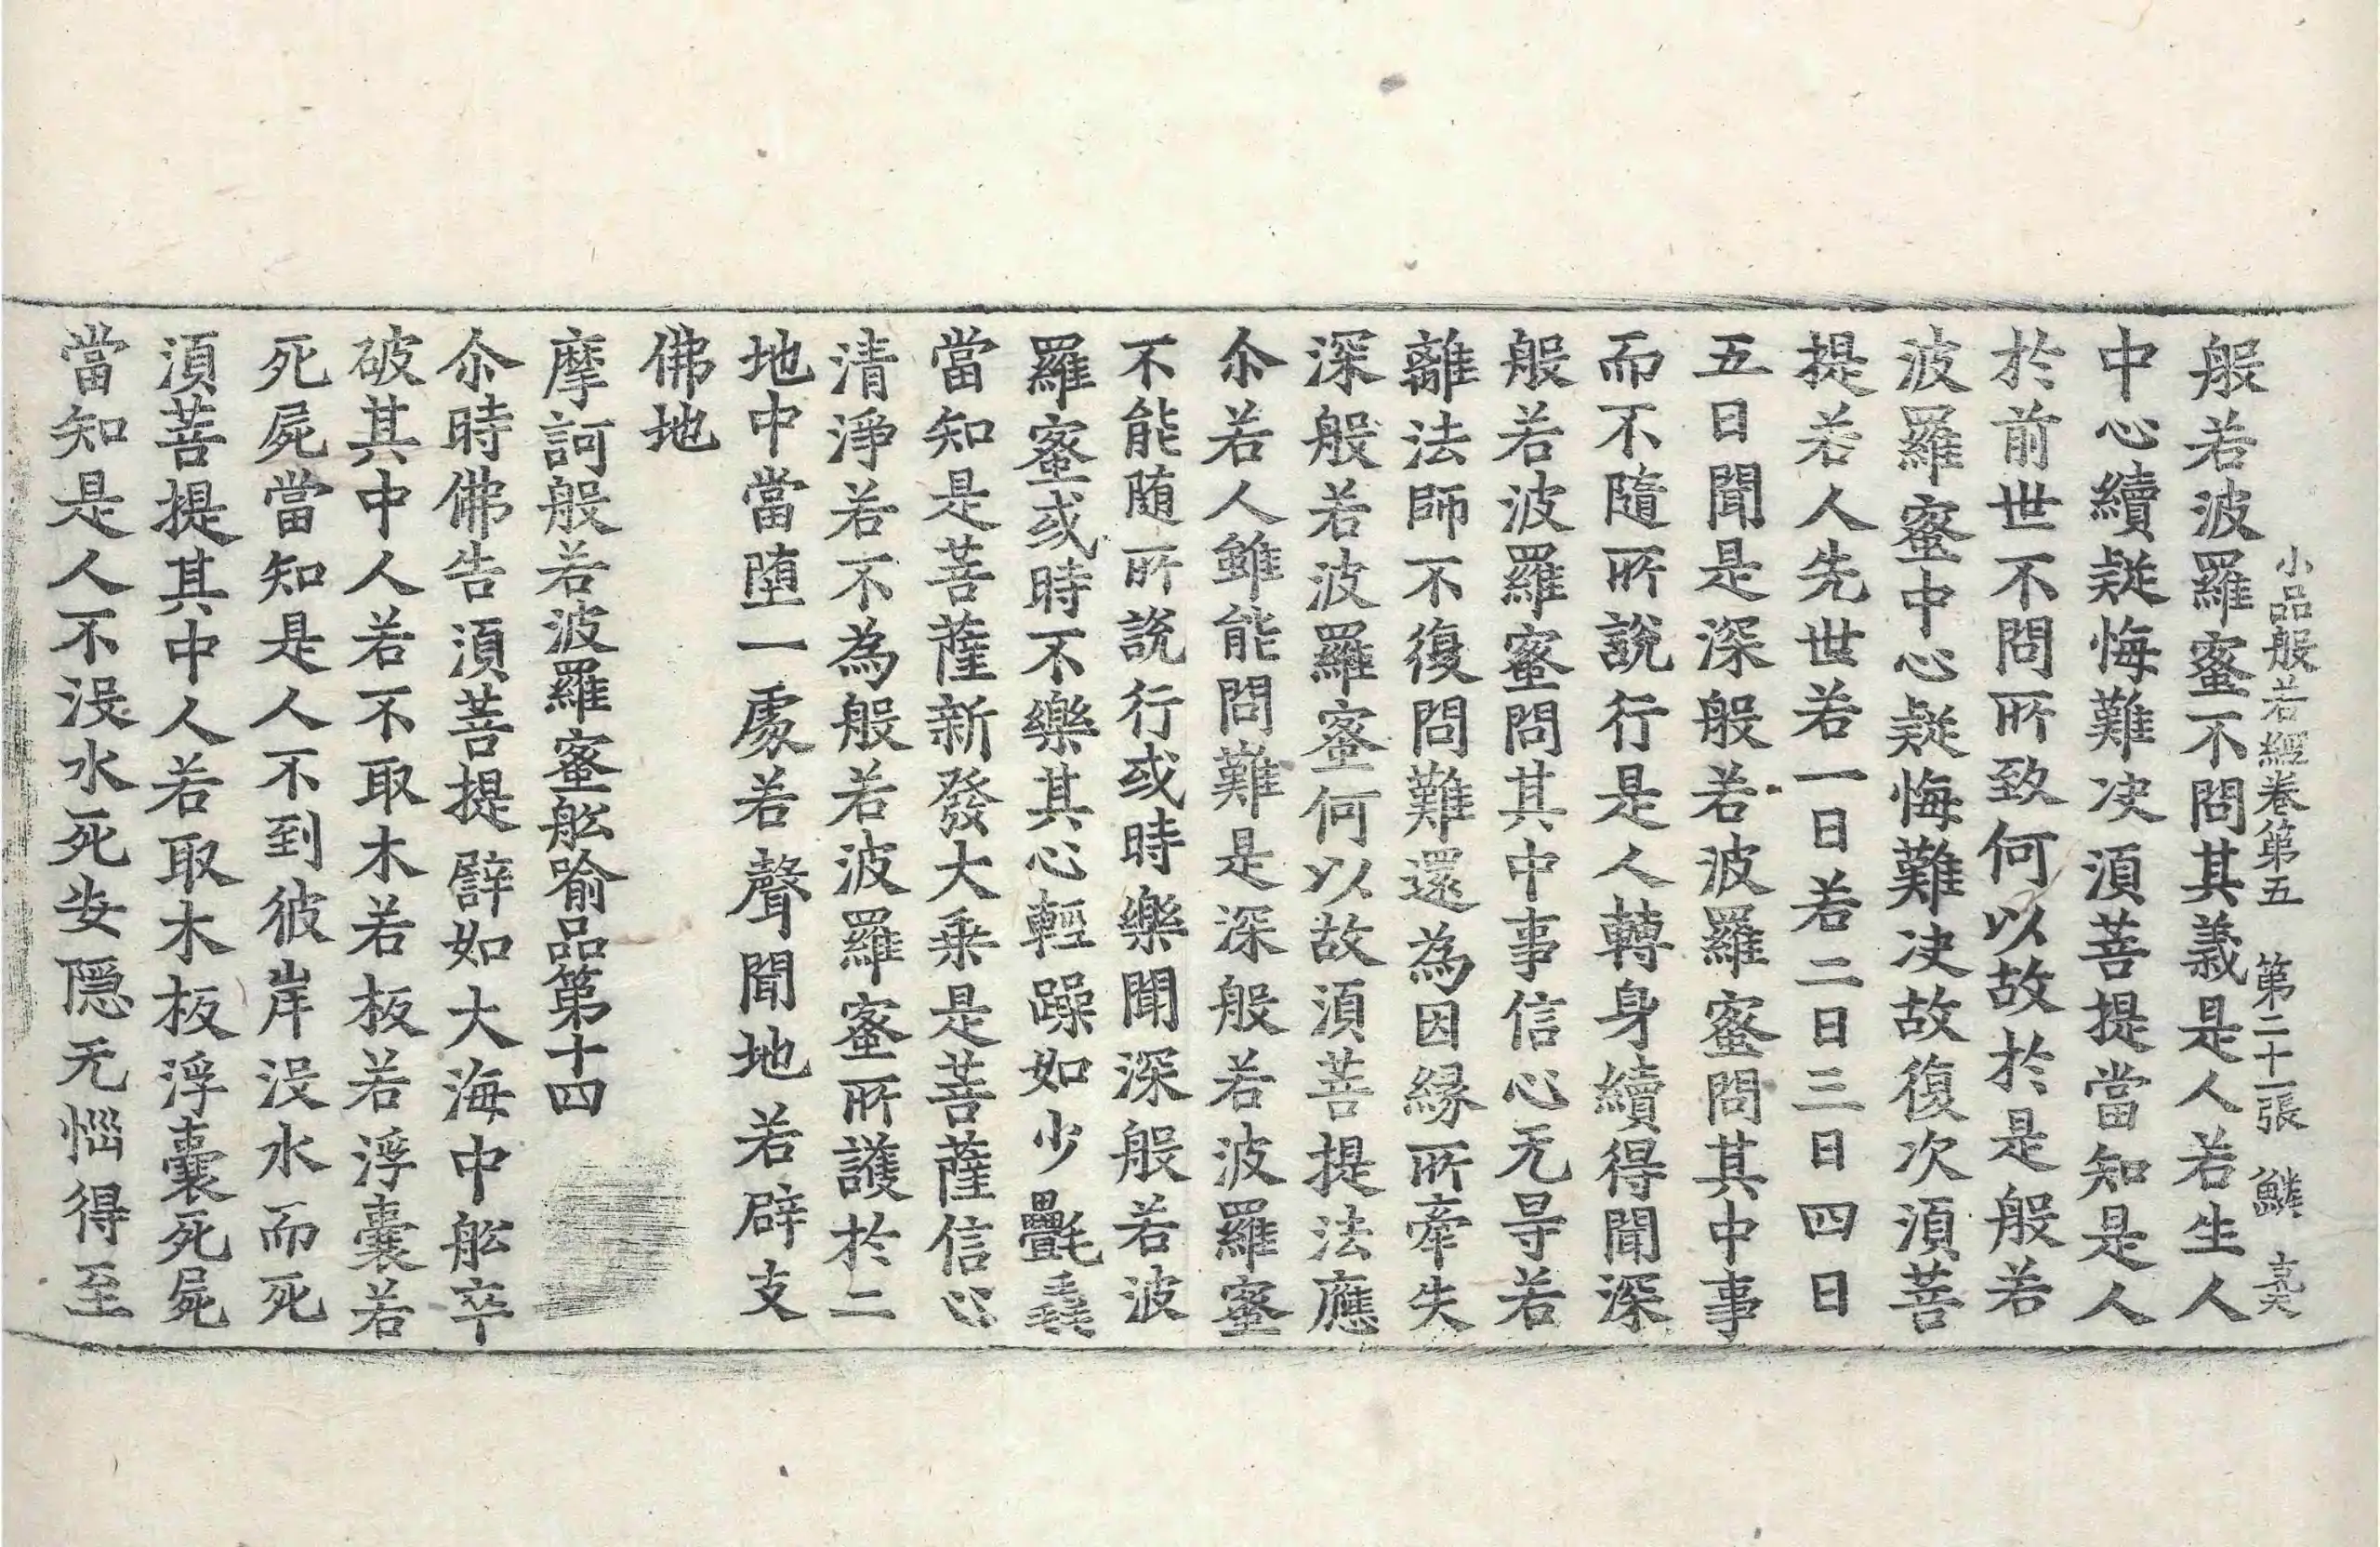 小品般若經卷第五 第二十一張 鱗
般若波羅蜜不問其義是人若生人
中心續疑悔難决湏菩提當知是人
於前世不問所致何以故於是般若
波羅蜜中心疑悔難决故復次湏菩
提若人先世若一日若二日三日四日
五日聞是深般若波羅蜜問其中事
而不隨所說行是人轉身續得聞深
般若波羅蜜問其中事信心无㝵若
離法師不復問難還為因緣所牽失
深般若波羅蜜何以故湏菩提法應
尒若人雖能問難是深般若波羅蜜
不能随所說行或時樂聞深般若波
羅蜜或時不樂其心輕躁如少㲲毳
當知是菩薩新發大乗是菩薩信心
清淨若不為般若波羅蜜所護於二
地中當堕一處若聲聞地若辟支
佛地
摩訶般若波羅蜜舩喻品第十四
尒時佛告湏菩提譬如大海中舩卒
破其中人若不取木若板若浮囊若
死屍當知是人不到彼岸没水而死
湏菩提其中人若取木板浮囊死屍
當知是人不没水死安隠无惱得至